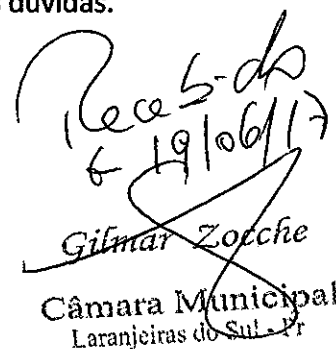 dúvidas.
Recebido
19/06/17
Gilmar Zocche
Câmara Municipal
Laranjeiras do Sul - Pr